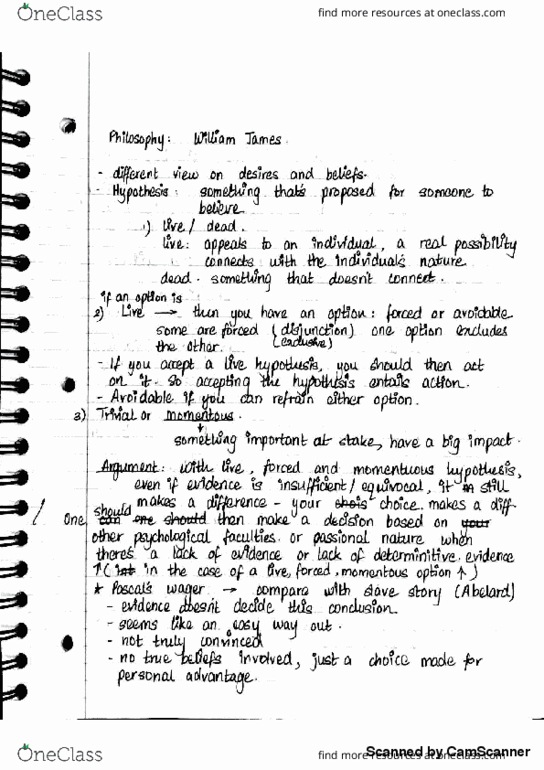 OneClass
find more resources at oneclass.com
Philosophy: William James.
- different view on desires and beliefs.
- Hypothesis: something that's proposed for someone to
believe
1) live / dead.
live: appeals to an individual, a real possibility
connects with the individual's nature
dead. something that doesn't connect.
if an option is
2) Live → then you have an option: forced or avoidable
some are forced (disjunction) one option excludes
(exclusive)
the other.
- If you accept a live hypothesis, you should then act
on it. so accepting the hypothesis entails action.
- Avoidable if you can refrain either option.
3) Trivial or momentous.
something important at stake, have a big impact.
Argument: with live, forced and momentuous hypothesis,
even if evidence is insufficient / equivocal, it still
makes a difference - your choice makes a diff-
should
One can one should then make a decision based on your
other psychological faculties or passional nature when
there's a lack of evidence or lack of determinitive evidence
↑ ( in the case of a live, forced, momentous option ↑ )
* Pascal's wager → compare with slave story (Abelard)
- evidence doesn't decide this conclusion.
- seems like an easy way out.
- not truly convinced
- no true beliefs involved, just a choice made for
personal advantage.
OneClass
find more resources at oneclass.com
Scanned by CamScanner